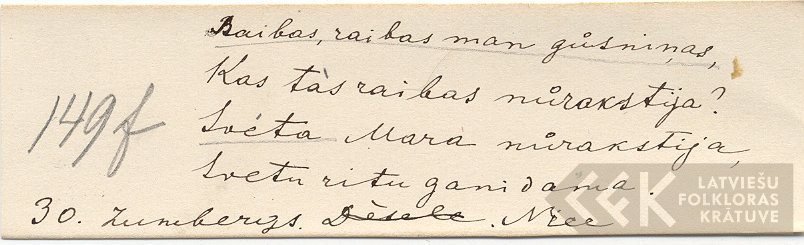 Raibas, raibas man gůsniņas,
Kas tàs raibas nůrakstija?
149f
Svéta Mara nůrakstija,
Svetu ritu ganidama.
30. Zumbergs. Dēsele. Nr
LATVIEŠU
FOLKLORAS
KRĀTUVE